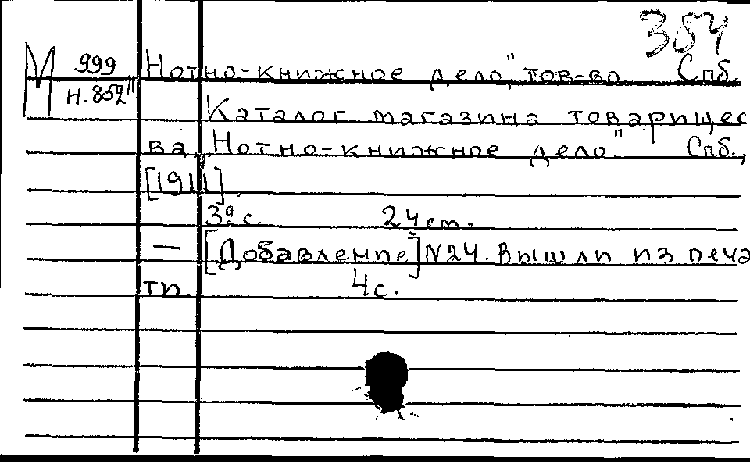 354
М 999 Нотно-книжное дело," тов-во Спб.
Н.852"
Каталог магазина товарищес
ва „Нотно-книжное дело". Спб.,
[1911].
39 с. 24 см.
— [Добавление] №24. Вышли из печа
ти 4 с.